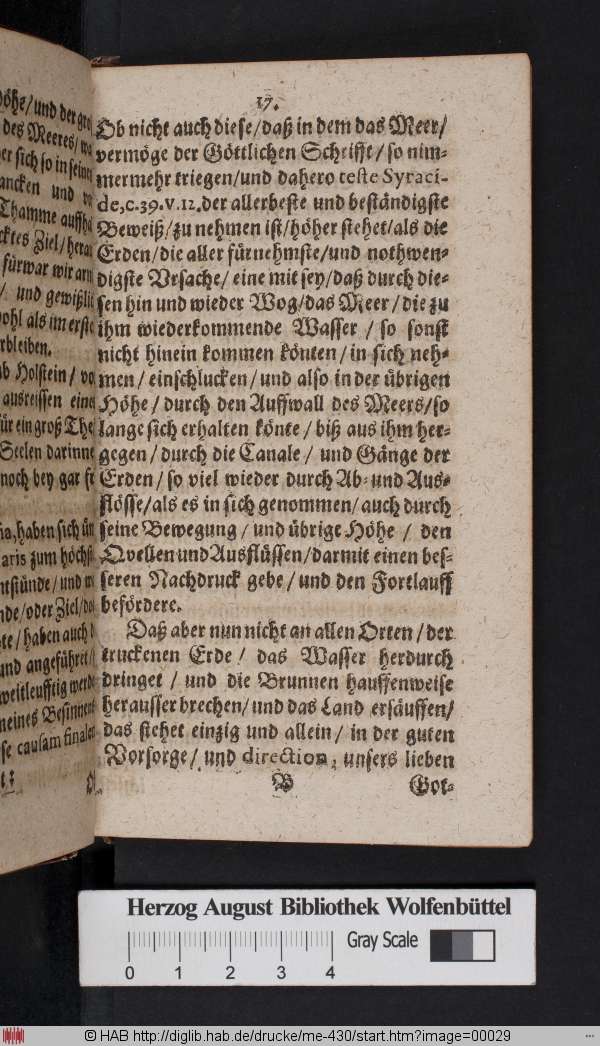 17.
Ob nicht auch diese/daß in dem das Meer/
vermöge der Göttlichen Schrifft/so nim-
mermehr triegen/und dahero teste Syraci-
de,c.39.v.12.der allerbeste und beständigste
Beweiß/zu nehmen ist/höher stehet/als die
Erden/die aller fürnehmste/und nothwen-
digste Vrsache/eine mit sey/daß durch die-
sen hin und wieder Wog/das Meer/die zu
ihm wiederkommende Wasser/so sonst
nicht hinein kommen könten/in sich neh-
men/einschlucken/und also in der übrigen
Höhe/durch den Auffwall des Meers/so
lange sich erhalten könte/biß aus ihm her-
gegen/durch die Canale/und Gänge der
Erden/so viel wieder durch Ab- und Aus-
flösse/als es in sich genommen/auch durch
seine Bewegung/und übrige Höhe/den
Qvellen und Ausflüssen/darmit einen bes-
seren Nachdruck gebe/und den Fortlauff
befördere.
Daß aber nun nicht an allen Orten/der
truckenen Erde/das Wasser herdurch
dringet/und die Brunnen hauffenweise
herausser brechen/und das Land ersäuffen/
das stehet einzig und allein/in der guten
Vorsorge/und direction, unsers lieben
B Got-
des Meeres/
er sich so in seinen
ancken und
Thamme auffh
cktes Ziel/
fürwar wir arm
/ und gewißli
wohl als im erste
rbleiben.
ab Holstein/
ausreissen eine
für ein groß The
Seelen darinne
noch bey gar
haben sich
aris zum höchst
ntstünde/und
nde/oder Ziel/
te/haben auch
und angeführet/
weitleufftig werde
meines Besinnen
se causam finalem
Herzog August Bibliothek Wolfenbüttel
Gray Scale
0 1 2 3 4
© HAB http://diglib.hab.de/drucke/me-430/start.htm?image=00029